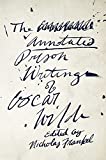 The
Annotated
Prison
Writings
of
Oscar
Wilde
edited by
Nicholas Frankel